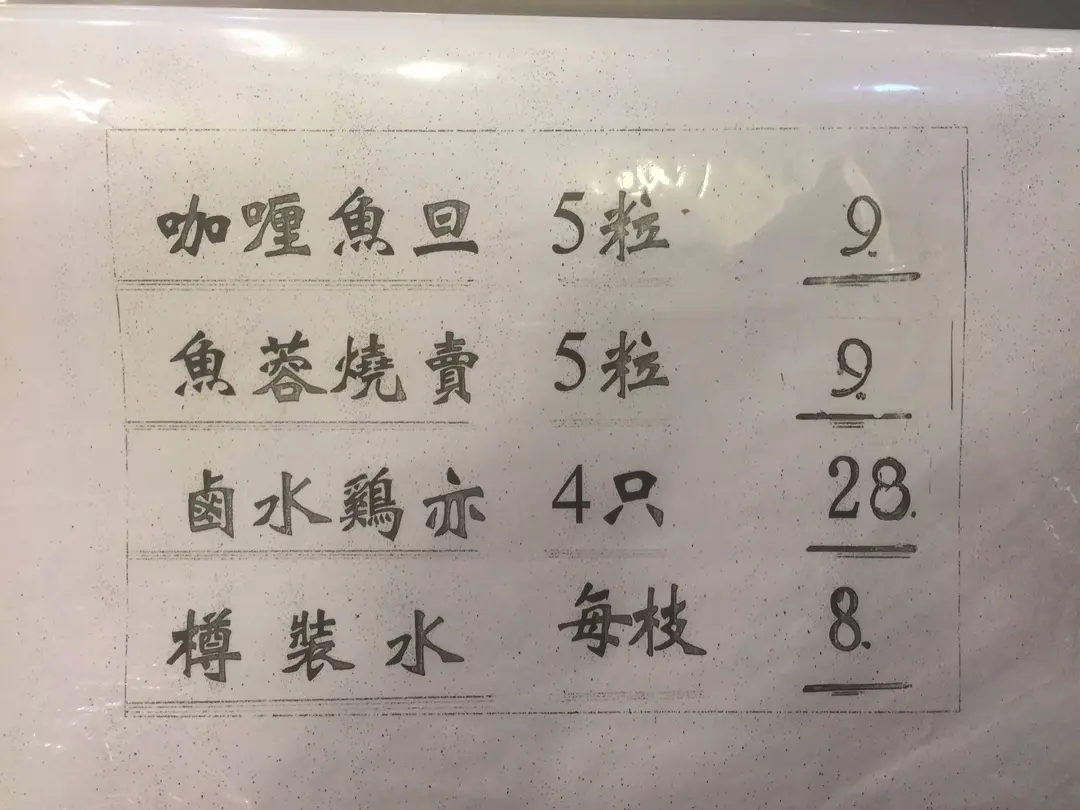 咖喱魚旦 5粒 9.
魚蓉燒賣 5粒 9.
鹵水鷄亦 4只 28.
樽裝水 每枝 8.